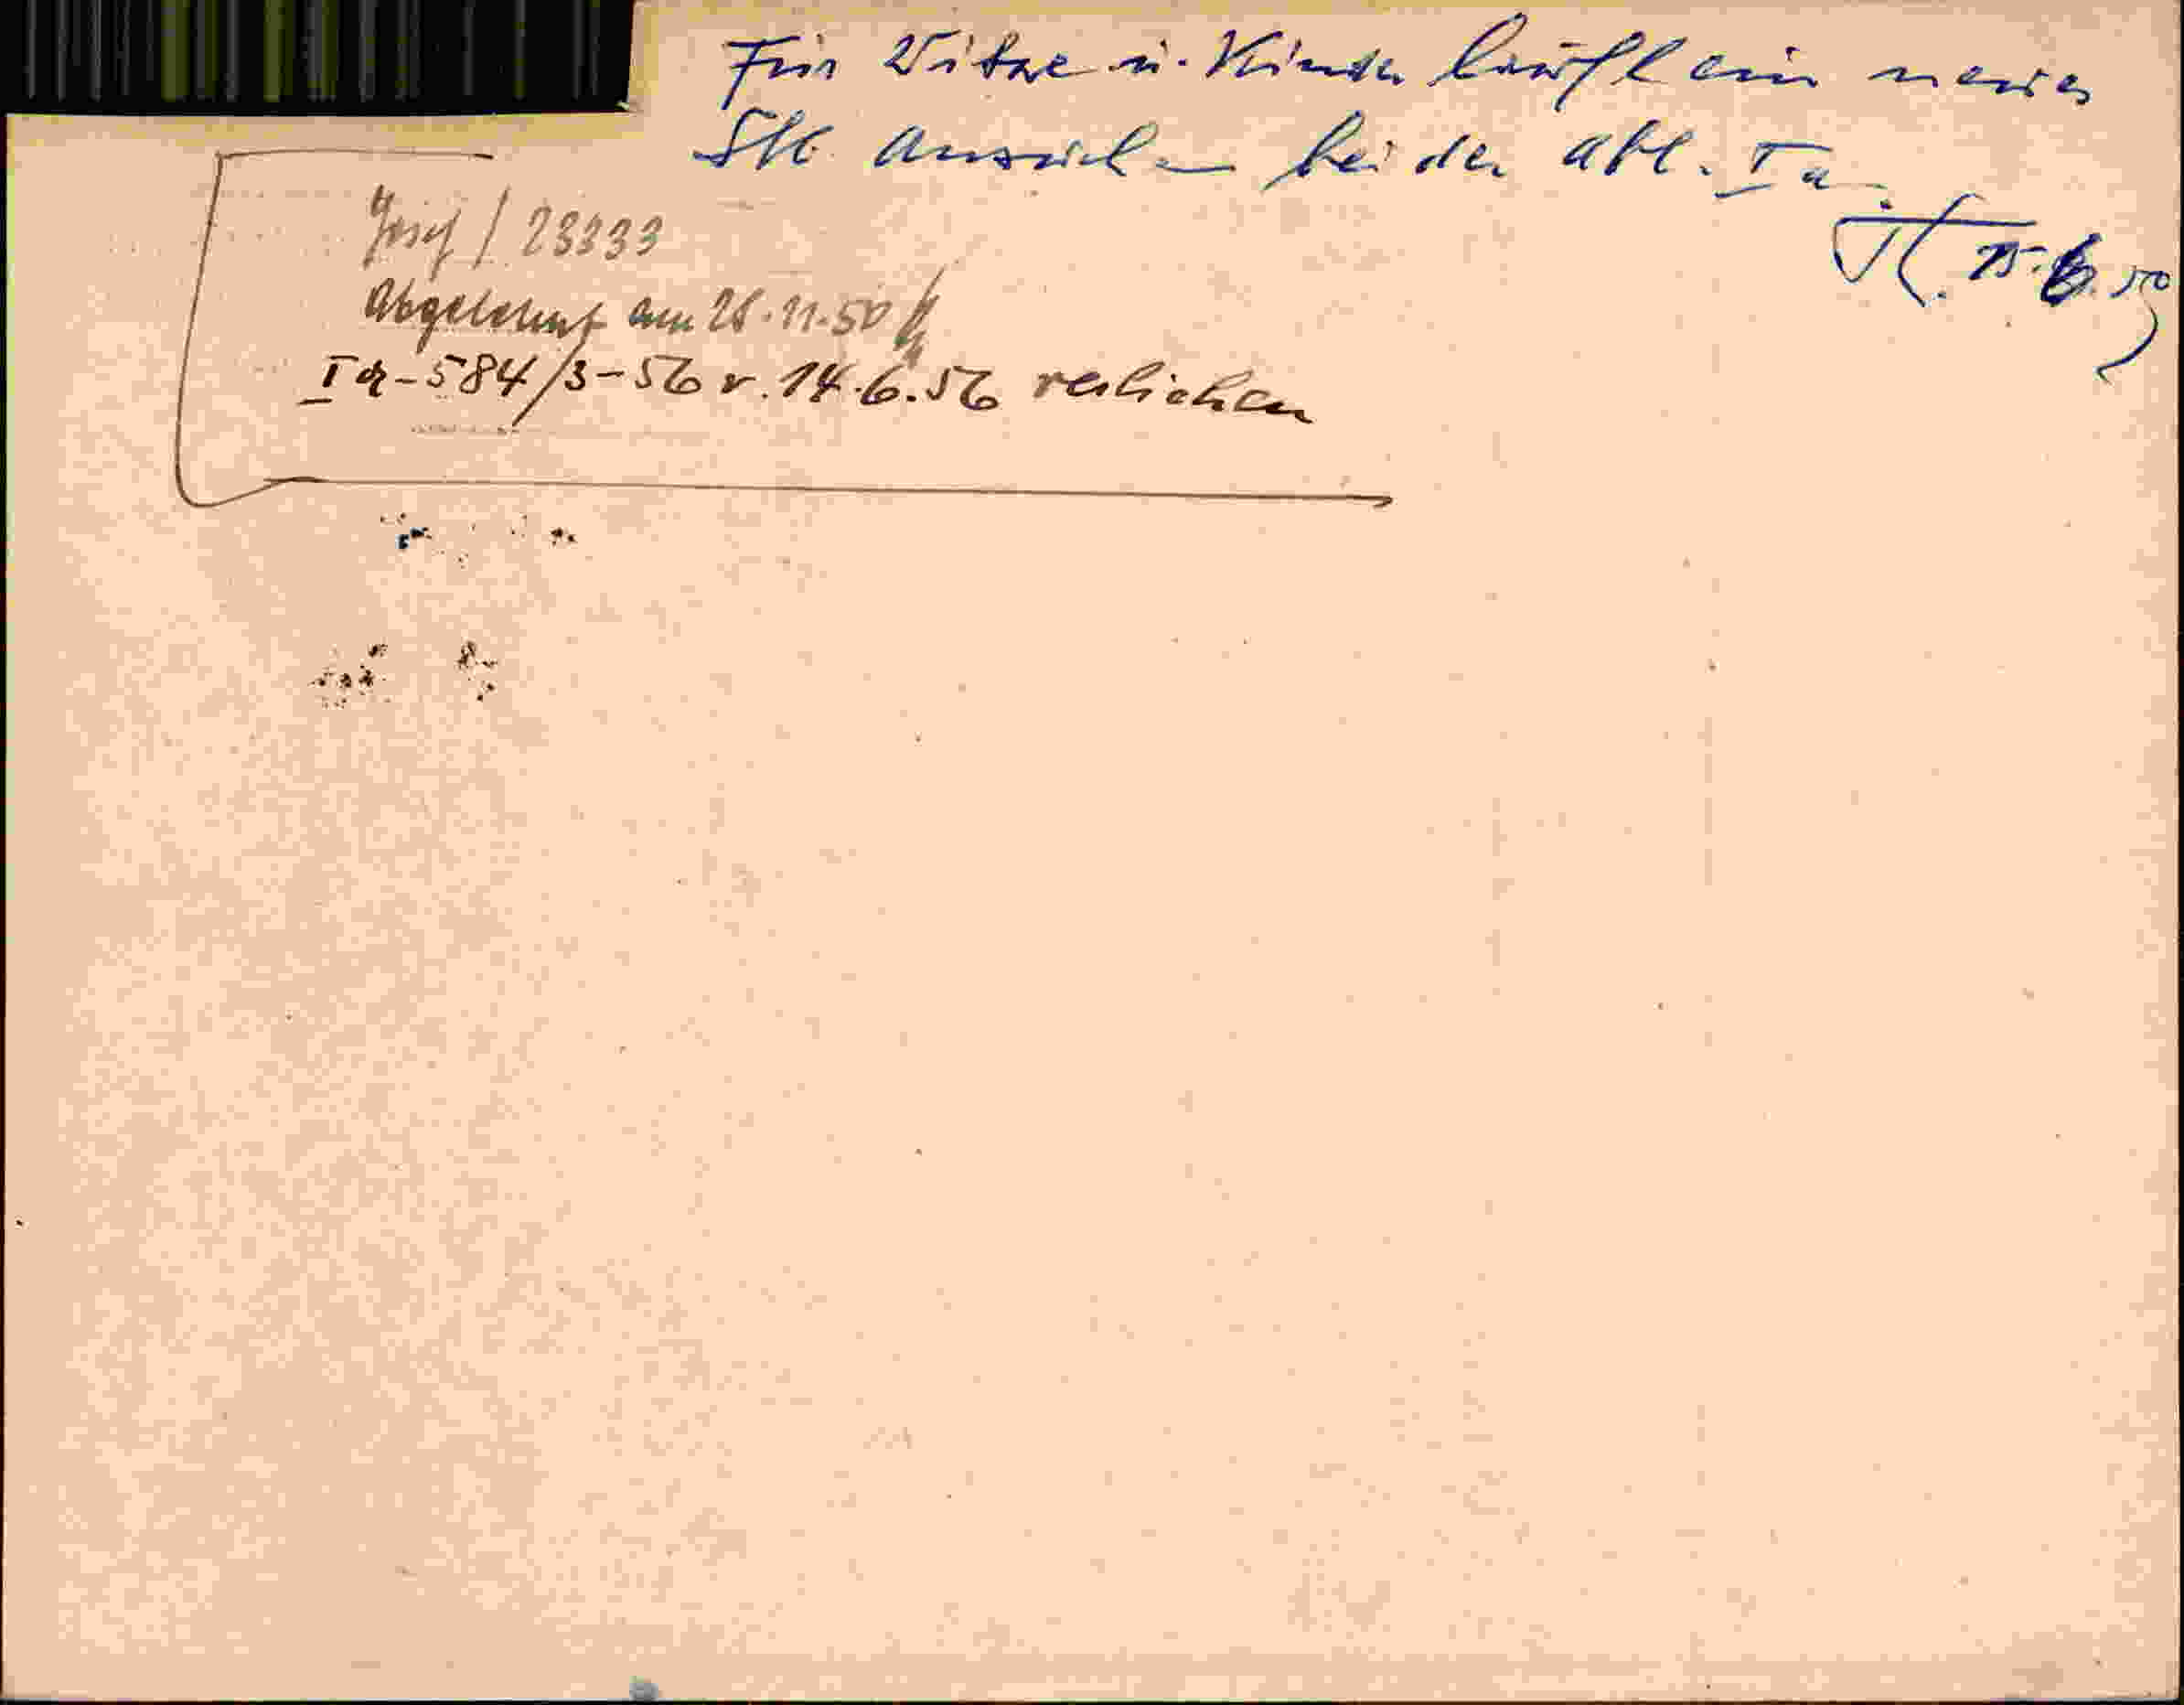 Für Witwe u. Kinder läuft ein neues
Stb. Ansuchen bei der Abt. Ia.
15.6.50
Josef / 23333
Abgelehnt am 28.11.50
Ia-584/3-56 v. 14.6.56 verliehen